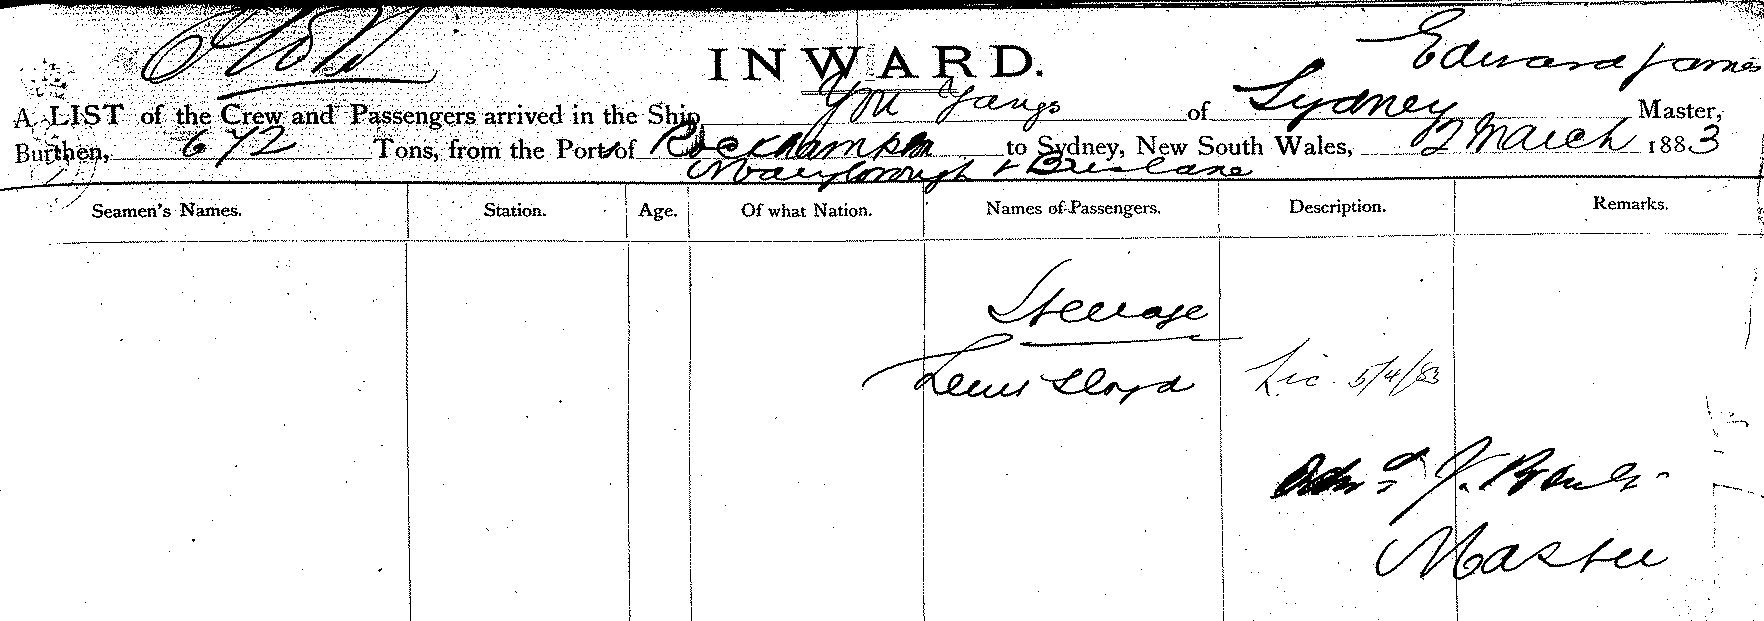 INWARD.
Edward James
A LIST of the Crew and Passengers arrived in the Ship You Yangs of Sydney Master,
Burthen, 672 Tons, from the Ports of Rockhampton to Sydney, New South Wales, 2 March 1883
Maryborough & Brisbane
Seamen's Names. Station. Age. Of what Nation. Names of Passengers. Description. Remarks.
Steerage
Lewis Lloyd Lic. 5/4/83
J.
Master